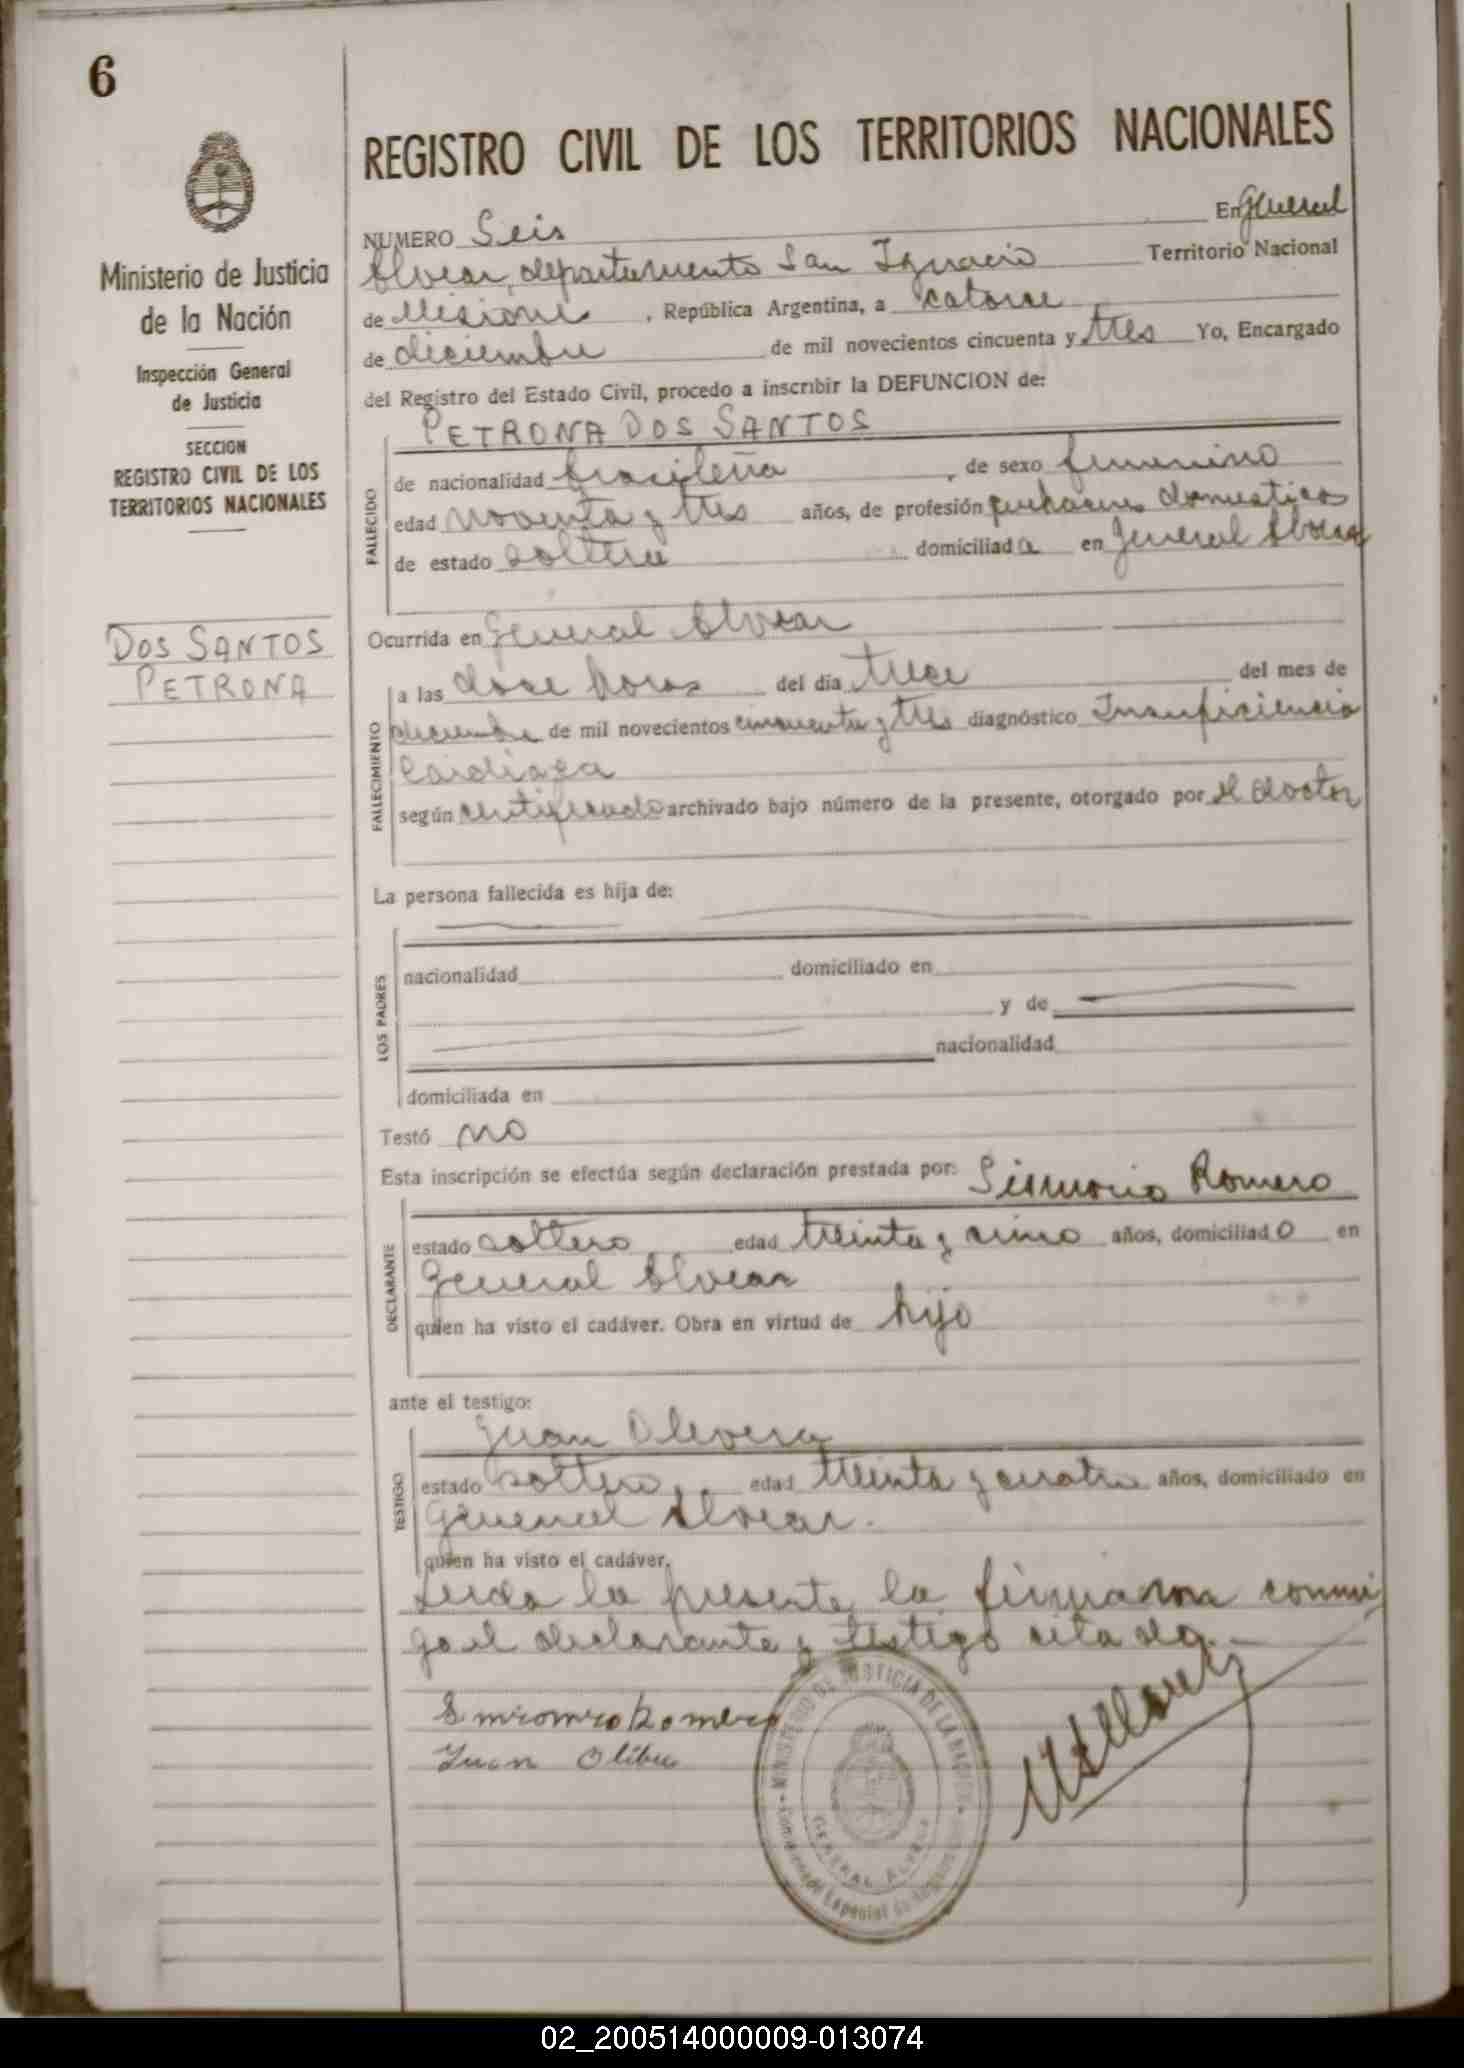 6
REGISTRO CIVIL DE LOS TERRITORIOS NACIONALES
Ministerio de Justicia
de la Nación
Inspección General
de Justicia
SECCION
REGISTRO CIVIL DE LOS
TERRITORIOS NACIONALES
DOS SANTOS
PETRONA
NUMERO Seis En General
Alvear, departamento San Ignacio Territorio Nacional
de Misiones, República Argentina, a catorce
de diciembre de mil novecientos cincuenta y tres Yo, Encargado
del Registro del Estado Civil, procedo a inscribir la DEFUNCION de:
PETRONA DOS SANTOS
FALLECIDO
de nacionalidad brasileña, de sexo femenino
edad noventa y tres años, de profesión quehaceres domesticos
de estado soltera domiciliada en General Alvear
Ocurrida en General Alvear
FALLECIMIENTO
a las doce horas del día trece del mes de
diciembre de mil novecientos cincuenta y tres diagnóstico Insuficiencia
Cardiaca
según certificado archivado bajo número de la presente, otorgado por el doctor
La persona fallecida es hija de:
LOS PADRES
nacionalidad domiciliado en
y de
nacionalidad
domiciliada en
Testó no
Esta inscripción se efectúa según declaración prestada por: Romero
DECLARANTE
estado soltero edad treinta y años, domiciliado en
General Alvear
quien ha visto el cadáver. Obra en virtud de hijo
ante el testigo:
Juan Olivera
TESTIGO
estado soltero edad treinta y cuatro años, domiciliado en
General Alvear.
quien ha visto el cadáver.
Leida la presente la firmaron conmi
go el declarante y testigo citados.
Romero
Juan
MINISTERIO DE JUSTICIA DE LA NACION
GENERAL ALVEAR
02_200514000009-013074